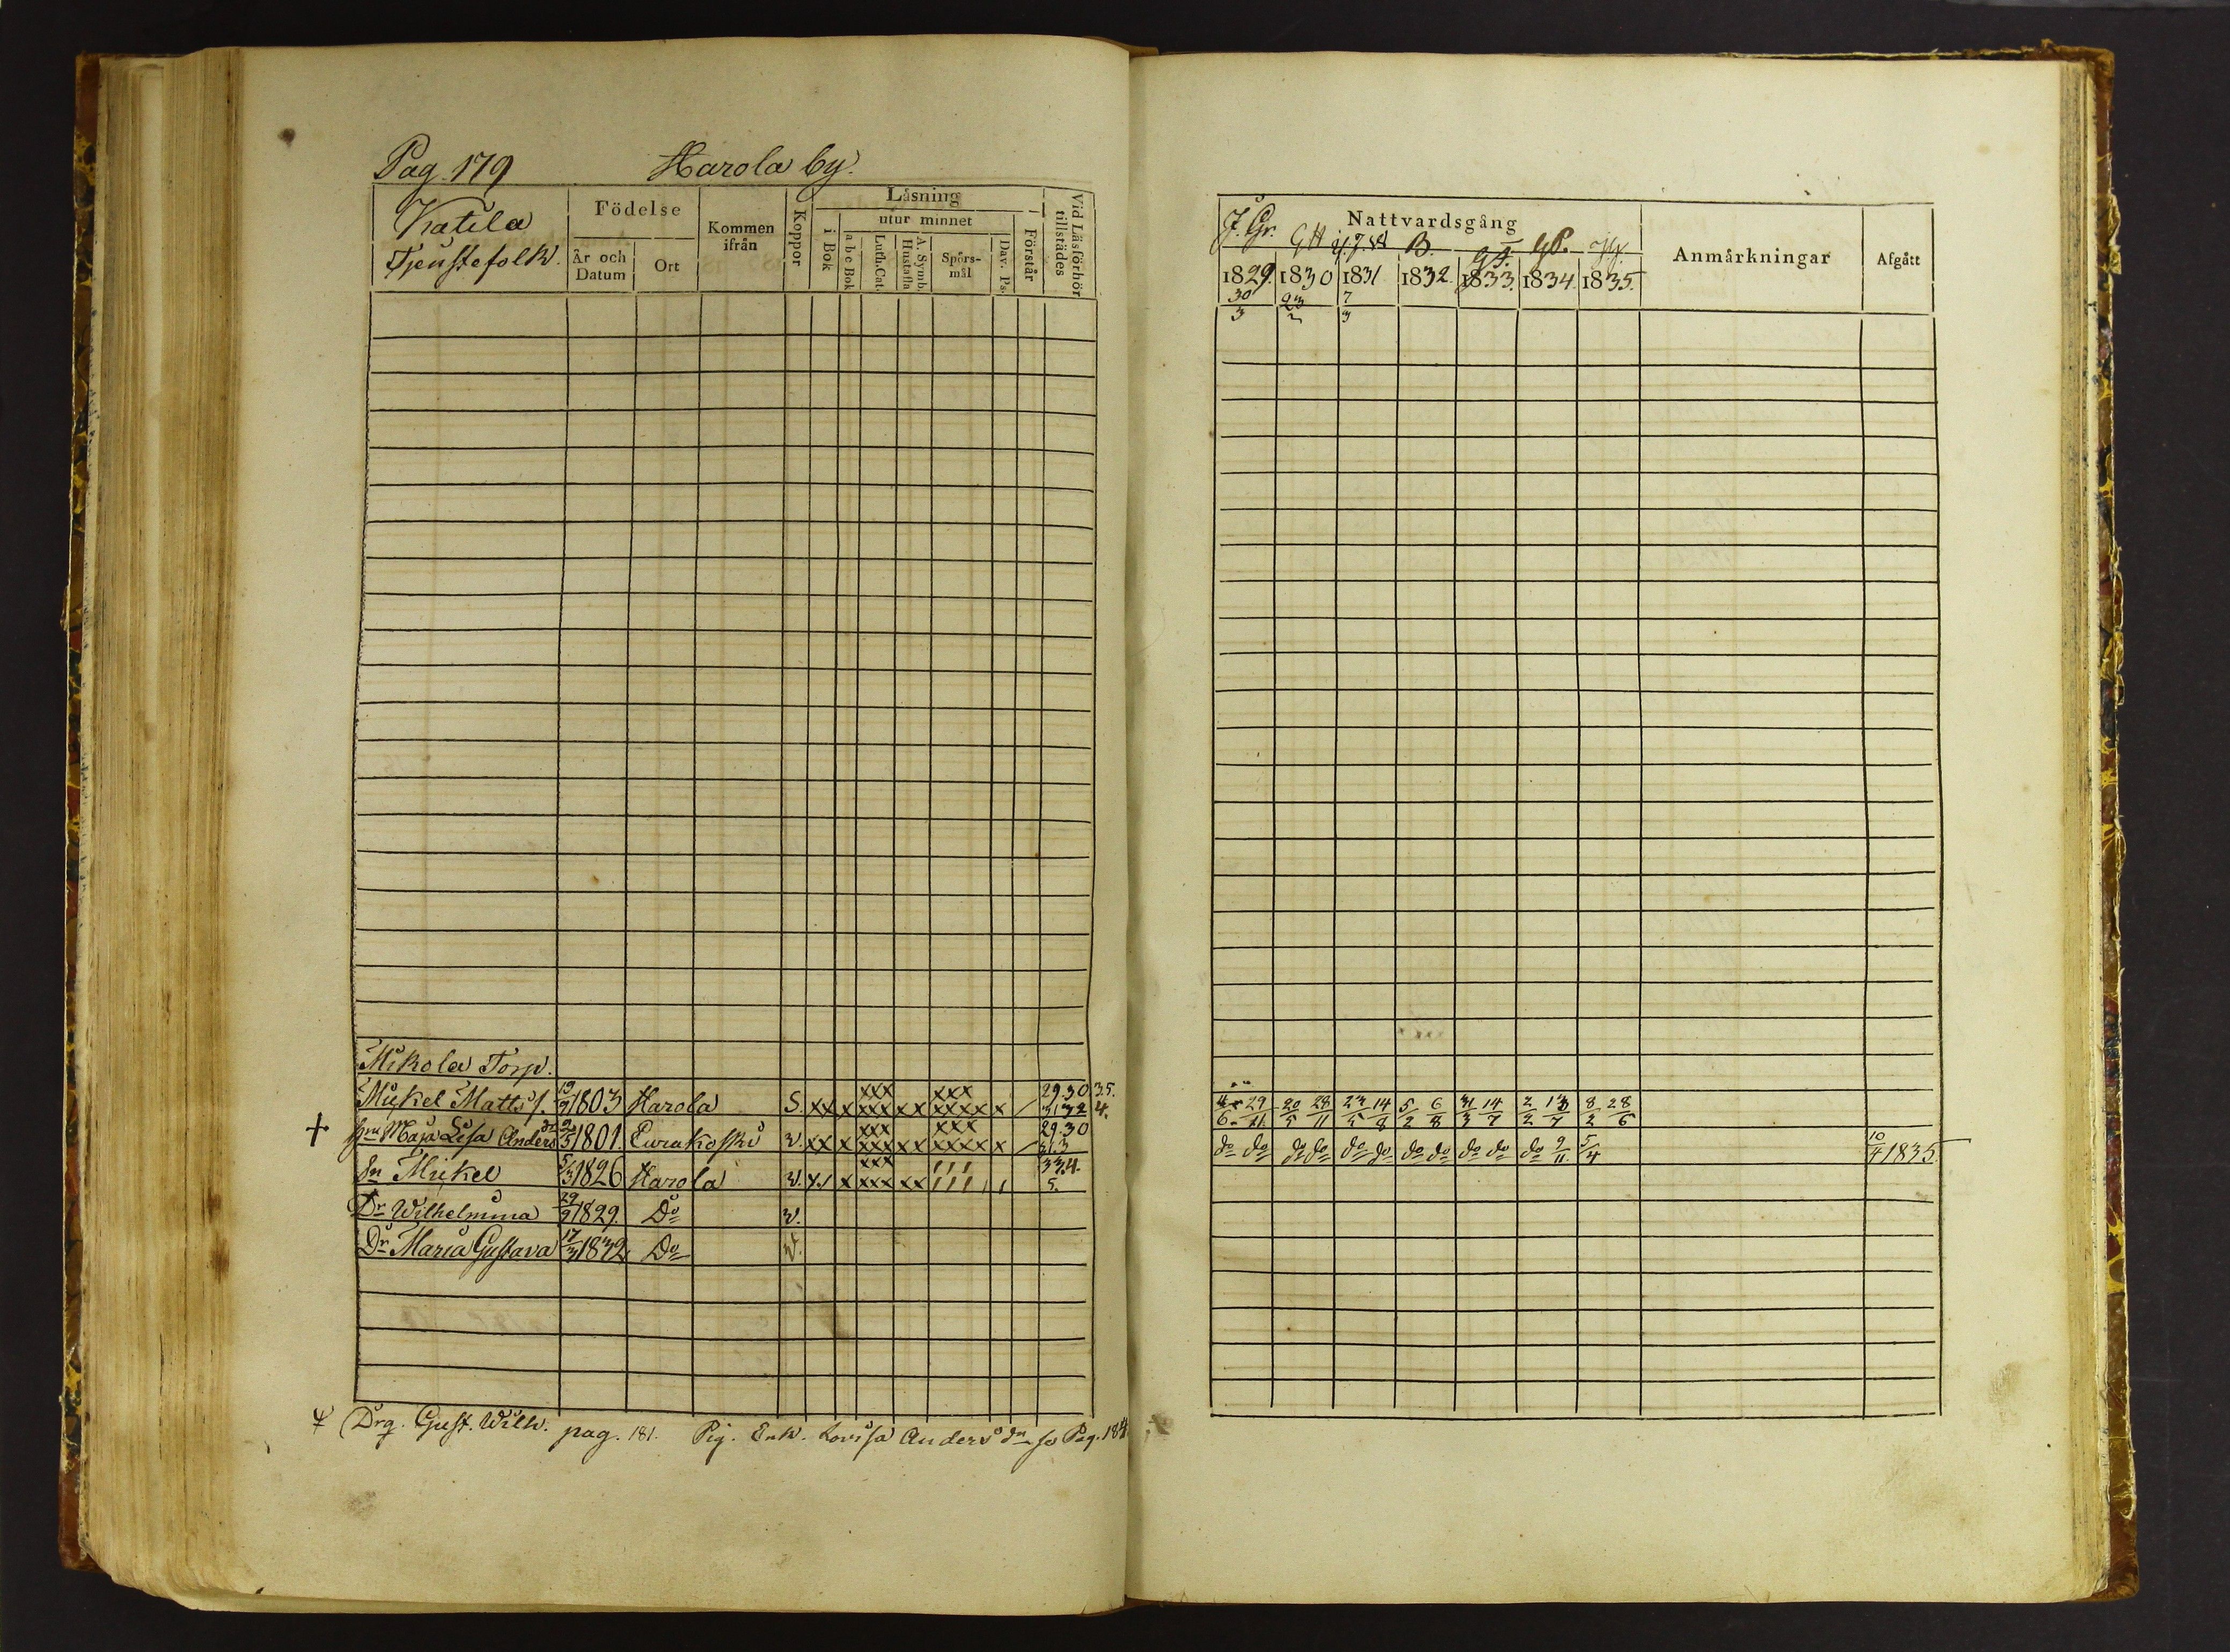 Pag. 179 Harola by.
Katila
Tjenstefolk.
Födelse
År och Datum
Ort
Kommen ifrån
Koppor
Låsning
i Bok
utur minnet
a b c Bok
Luth. Cat.
A. Symb. Hustafla
Spörsmål
Dav. Ps.
Förstår
Vid Läsförhör tillstädes
Mikola Torp.
Mickel Matts s. 19/9 1803 Harola S. xx x xxx xxx xx xxx xxxx x / 29.30 35. 31 32 4.
+ Hru Maja Lisa Anders dr 2/5 1801 Eurakoski v. xx x xxx xxx xx xxx xxxx x / 29.30 31.3
Sn Mickel 5/3 1826 Harola v. x/ x xxx xxx xx 33.4. 5.
Dr Wilhelmina 29/9 1829. Do v.
Dr Maria Gustava 17/3 1832 Do v.
Drg. Gust. Wilh. pag. 181. Pig. Enk. Lovisa Anders dr se Pag. 184
Nattvardsgång
J. Gr. GH B.
1829. 1830 1831 1832. 1833. 1834. 1835.
30/3 23/2 7/3
Anmårkningar
Afgått
29/11 20/5 28/11 23/5 14/8 5/2 6/8 31/3 14/7 2/2 13/7 8/2 28/6
do do do do do do do do do do do 9/11 5/4 10/4 1835